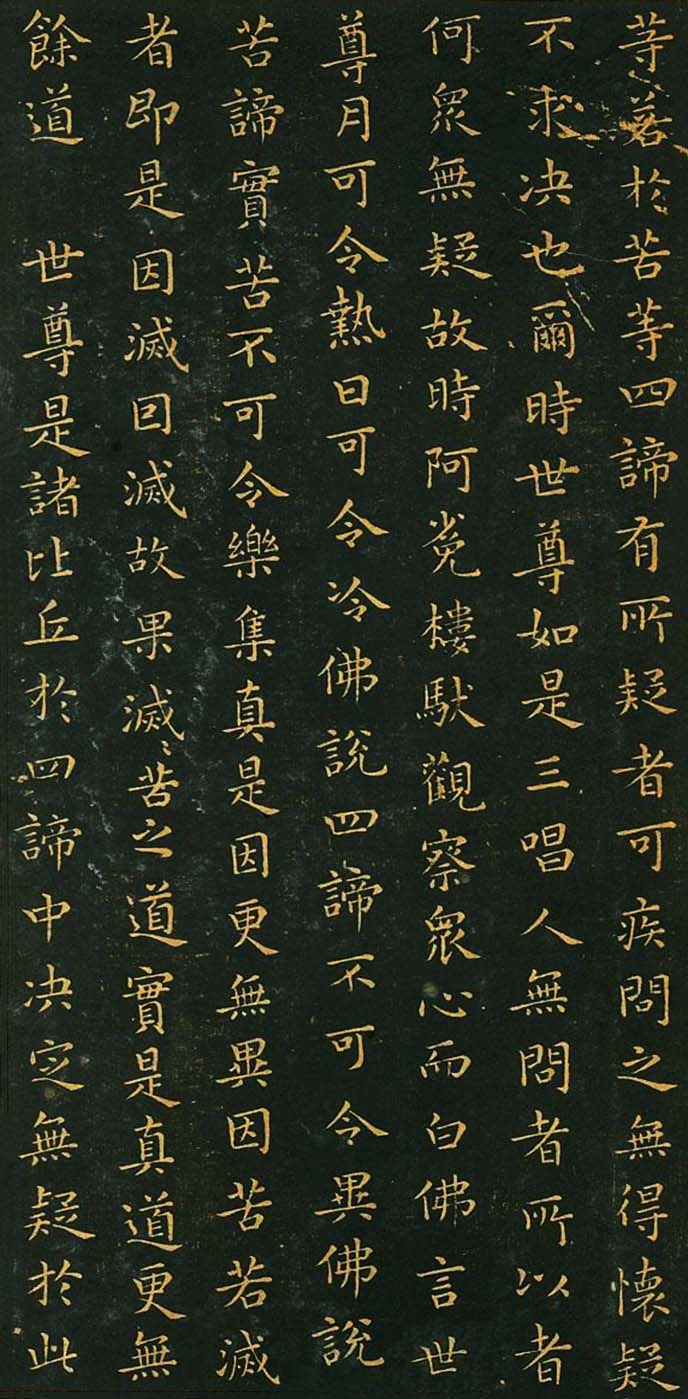 等若於苦等四諦有所疑者可疾問之無得懷疑
不求决也爾時世尊如是三唱人無問者所以者
何衆無疑故時阿㝹樓馱觀察衆心而白佛言世
尊月可令熱日可令冷佛說四諦不可令異佛說
苦諦實苦不可令樂集真是因更無異因苦若滅
者即是因滅因滅故果滅滅苦之道實是真道更無
餘道　世尊是諸比丘於四諦中决定無疑於此